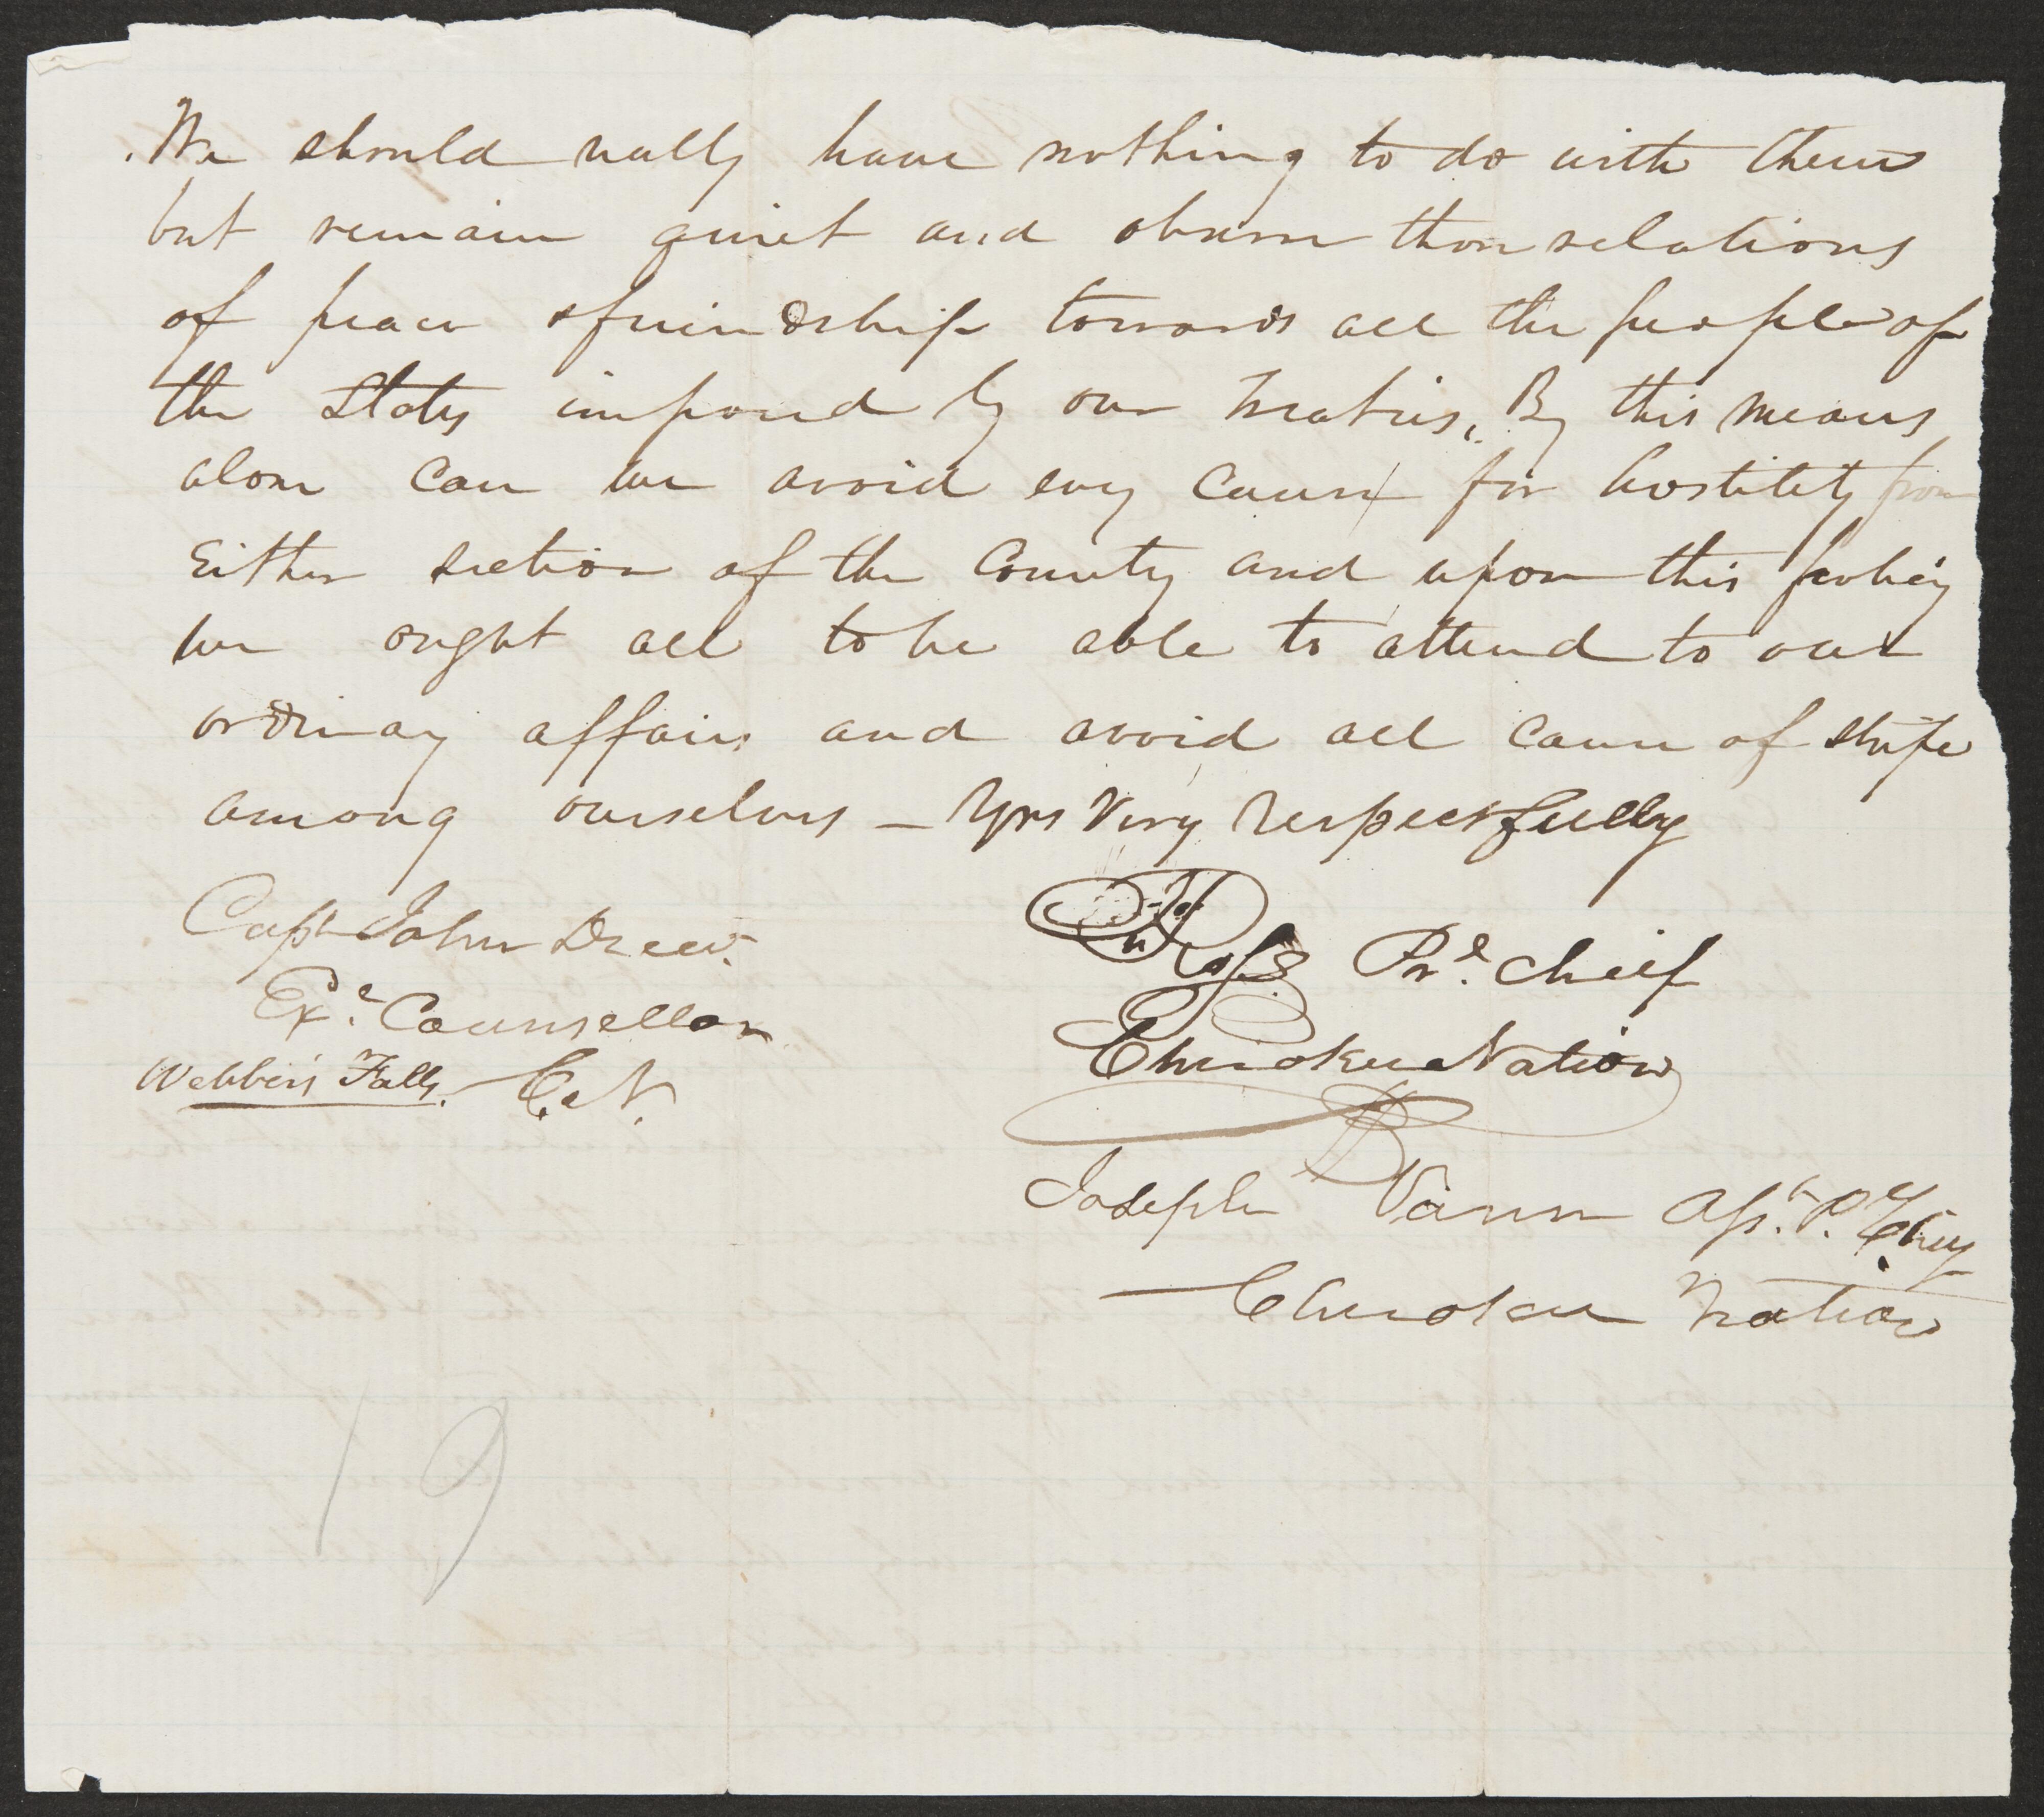 We should really have nothing to do with them
but remain quiet and observe those relations
of peace & friendship towards all the people of
the States imposed by our Treaties. By this means
alone can we avoid every cause for hostility from
Either section of the Country and upon this policy
we ought all to be able to attend to our
ordinary affairs and avoid all cause of strife
among ourselves – Yrs Very Respectfully
Capt John Drew.
Exe. Counsellor
Webbers Falls. C.N.
Jno Ross Prl. Chief
Cherokee Nation
Joseph Vann Asst. P. Chief
Cherokee Nation
19